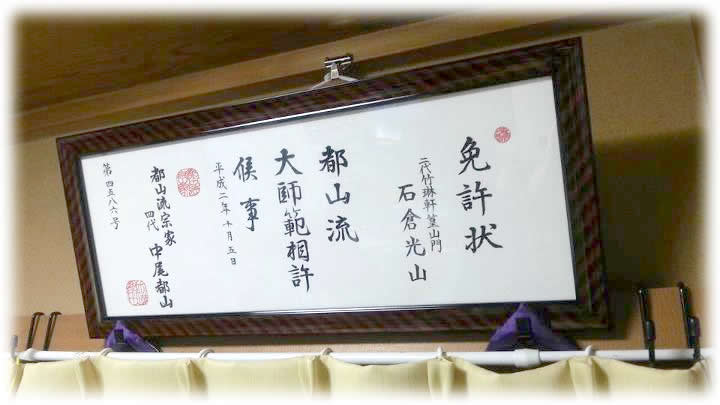 免許状
二代竹琳軒篁山門
石倉光山
都山流
大師範相許
候事
平成二年十月五日
都山流宗家
四代 中尾都山
第四五八六号